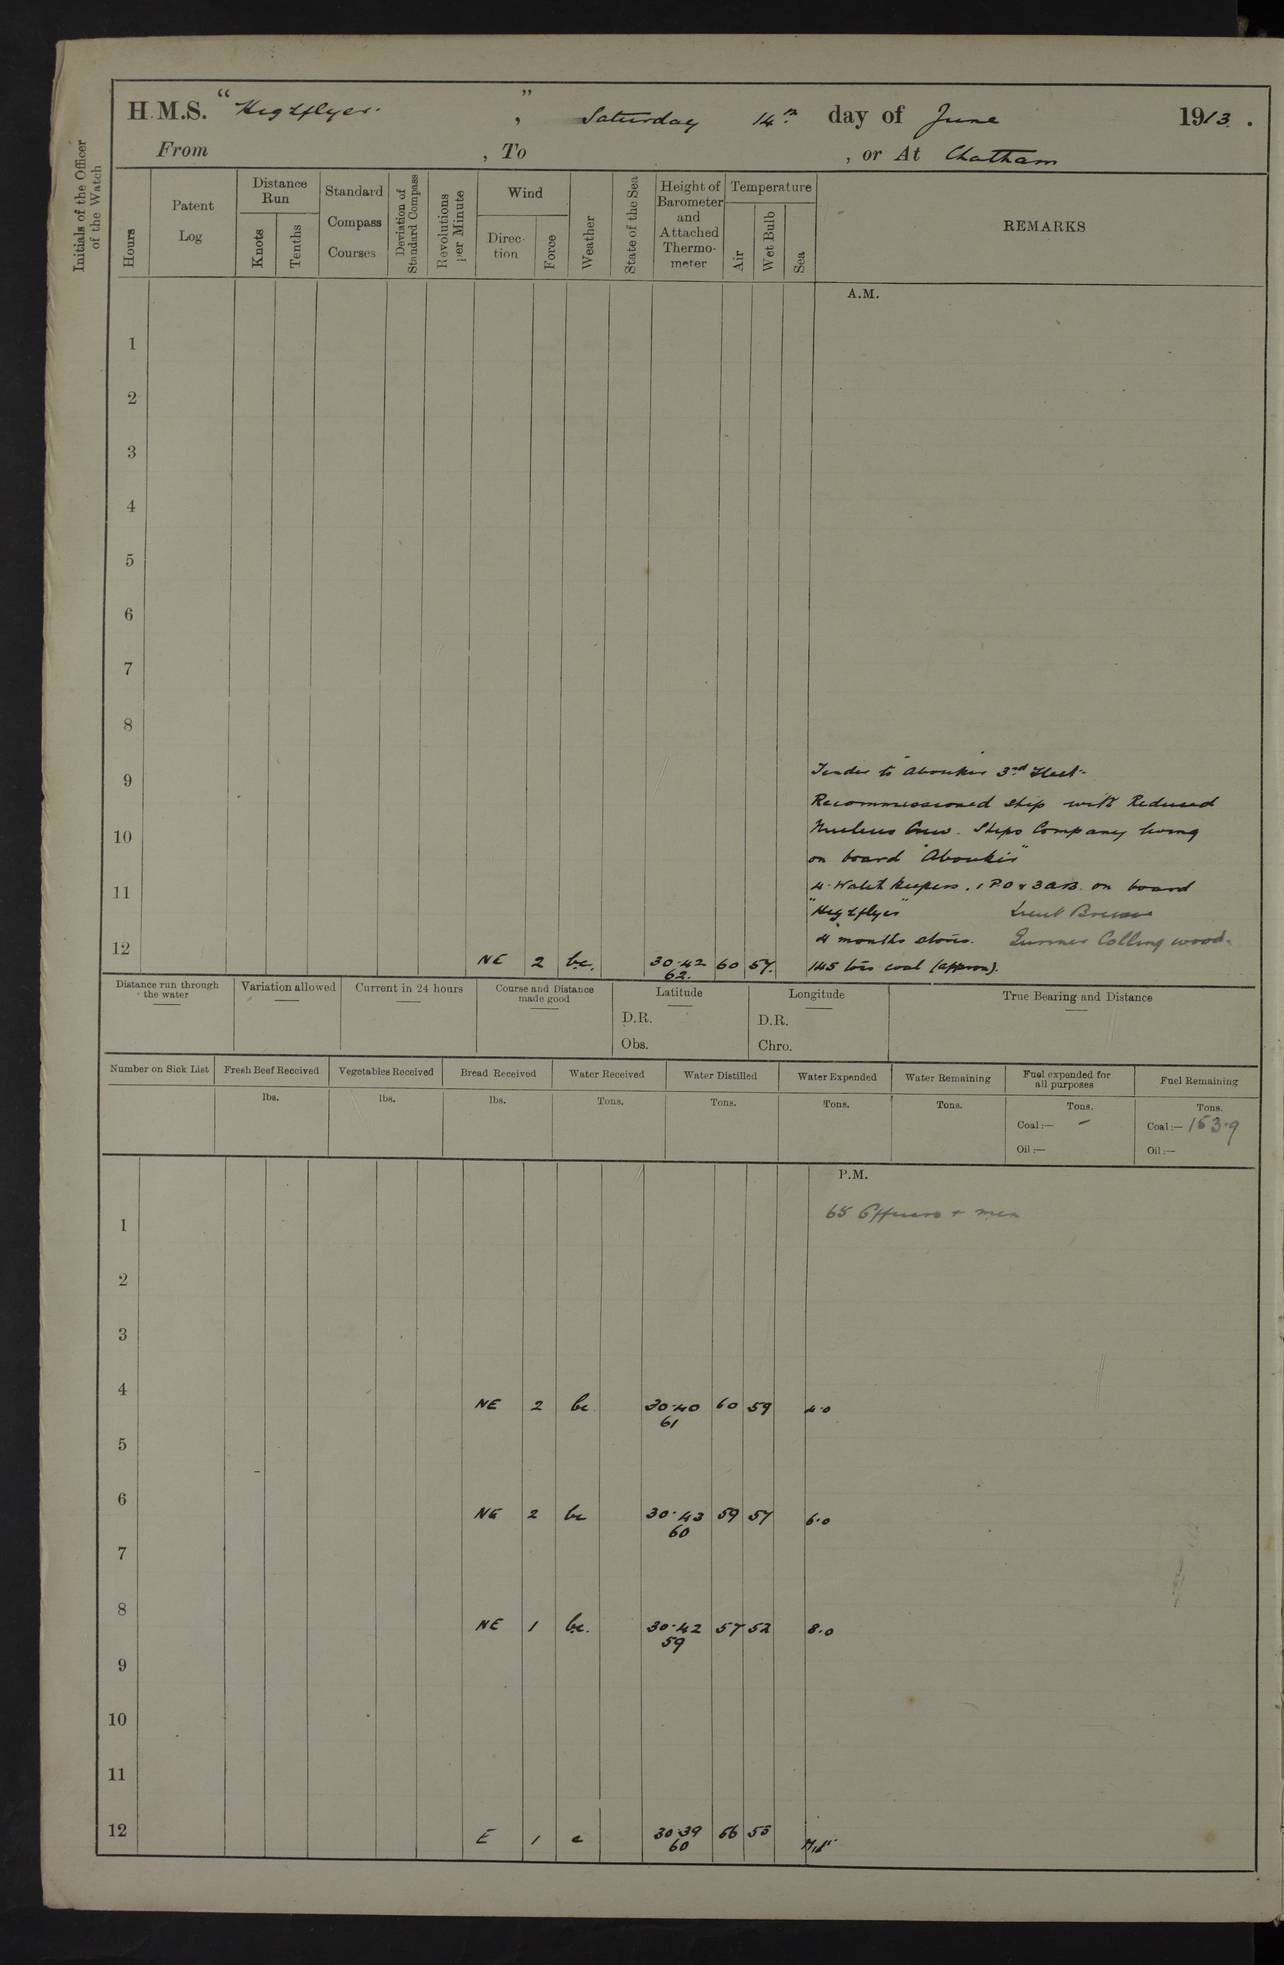 H.M.S. "Highflyer" , Saturday 14th day of June 1913.
From , To , or At Chatham
Initials of the Officer of the Watch
Hours
Patent Log
Distance Run
Knots
Tenths
Standard Compass Courses
Deviation of Standard Compass
Revolutions per Minute
Wind
Direction
Force
Weather
State of the Sea
Height of Barometer and Attached Thermometer
Temperature
Air
Wet Bulb
Sea
REMARKS
A.M.
1
2
3
4
5
6
7
8
9 Tender to Aboukir 3rd Fleet.
Recommissioned ship with Reduced
10 Nucleus Crew. Ships Company living
on board "Aboukir"
11 4 Watch keepers. 1 PO & 3 ABs. on board
"Highflyer" Lieut
4 months stores. Gunner Collingwood.
12 NE 2 bc. 30.42 60 57. 145 tons coal (approx).
62.
Distance run through the water
Variation allowed
Current in 24 hours
Course and Distance made good
Latitude
D.R.
Obs.
Longitude
D.R.
Chro.
True Bearing and Distance
Number on Sick List
Fresh Beef Received
Vegetables Received
Bread Received
Water Received
Water Distilled
Water Expended
Water Remaining
Fuel expended for all purposes
Fuel Remaining
lbs. lbs. lbs. Tons. Tons. Tons. Tons. Tons. Tons.
Coal:— - Coal:— 153.9
Oil:— Oil:—
P.M.
65 Officers & men
1
2
3
4 NE 2 bc 30.40 60 59 4.0
61
5
6 NE 2 bc 30.43 59 57 6.0
60
7
8 NE 1 bc. 30.42 57 52 8.0
59
9
10
11
12 E 1 c 30.39 56 55 Midt
60